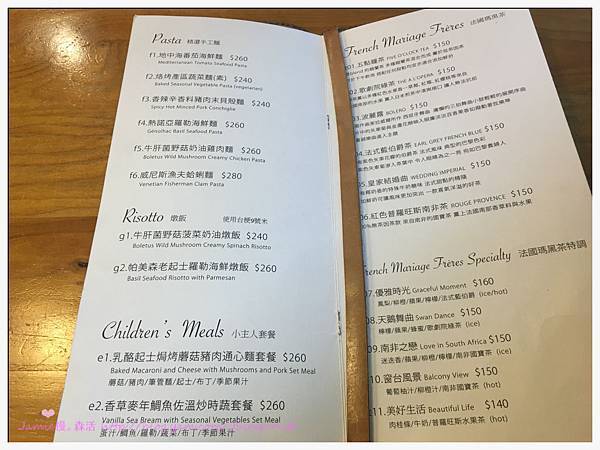 Pasta 精選手工麵
f1.地中海番茄海鮮麵 $260
Mediterranean Tomato Seafood Pasta
f2.焙烤產區蔬菜麵(素) $240
Baked Seasonal Vegetable Pasta (vegetarian)
f3.香辣辛香料豬肉末貝殼麵 $240
Spicy Hot Minced Pork Conchiglie
f4.熱諾亞羅勒海鮮麵 $260
Génoihac Basil Seafood Pasta
f5.牛肝菌野菇奶油雞肉麵 $260
Boletus Wild Mushroom Creamy Chicken Pasta
f6.威尼斯漁夫蛤蜊麵 $280
Venetian Fisherman Clam Pasta
Risotto 燉飯 使用台梗9號米
g1.牛肝菌野菇菠菜奶油燉飯 $240
Boletus Wild Mushroom Creamy Spinach Risotto
g2.帕美森老起士羅勒海鮮燉飯 $260
Basil Seafood Risotto with Parmesan
Children's Meals 小主人套餐
e1.乳酪起士焗烤蘑菇豬肉通心麵套餐 $260
Baked Macaroni and Cheese with Mushrooms and Pork Set Meal
蘑菇/豬肉/筆管麵/起士/布丁/季節果汁
e2.香草麥年鯛魚佐溫炒時蔬套餐 $260
Vanilla Sea Bream with Seasonal Vegetables Set Meal
蛋汁/鯛魚/羅勒/蔬菜/布丁/季節果汁
French Mariage Frères 法國瑪黑茶
01.五點綠茶 FIVE O'CLOCK TEA $150
02.歌劇院綠茶 THÉ À L'OPERA $150
03.波麗露 BOLERO $150
04.法式藍伯爵茶 EARL GREY FRENCH BLUE $150
05.皇家結婚曲 WEDDING IMPERIAL $150
06.紅色普羅旺斯南非茶 ROUGE PROVENCE $150
French Mariage Frères Specialty 法國瑪黑茶特調
07.優雅時光 Graceful Moment $160
鳳梨/柳橙/蘋果/檸檬/法式藍伯爵 (ice/hot)
08.天鵝舞曲 Swan Dance $150
檸檬/蘋果/蜂蜜/歌劇院綠茶 (ice)
09.南非之戀 Love in South Africa $150
迷迭香/蘋果/柳橙/檸檬/南非國寶茶 (ice)
10.窗台風景 Balcony View $150
葡萄柚汁/柳橙汁/南非國寶茶 (hot)
e11.美好生活 Beautiful Life $140
肉桂條/牛奶/普羅旺斯水果茶 (hot)
Jamie慢。森活